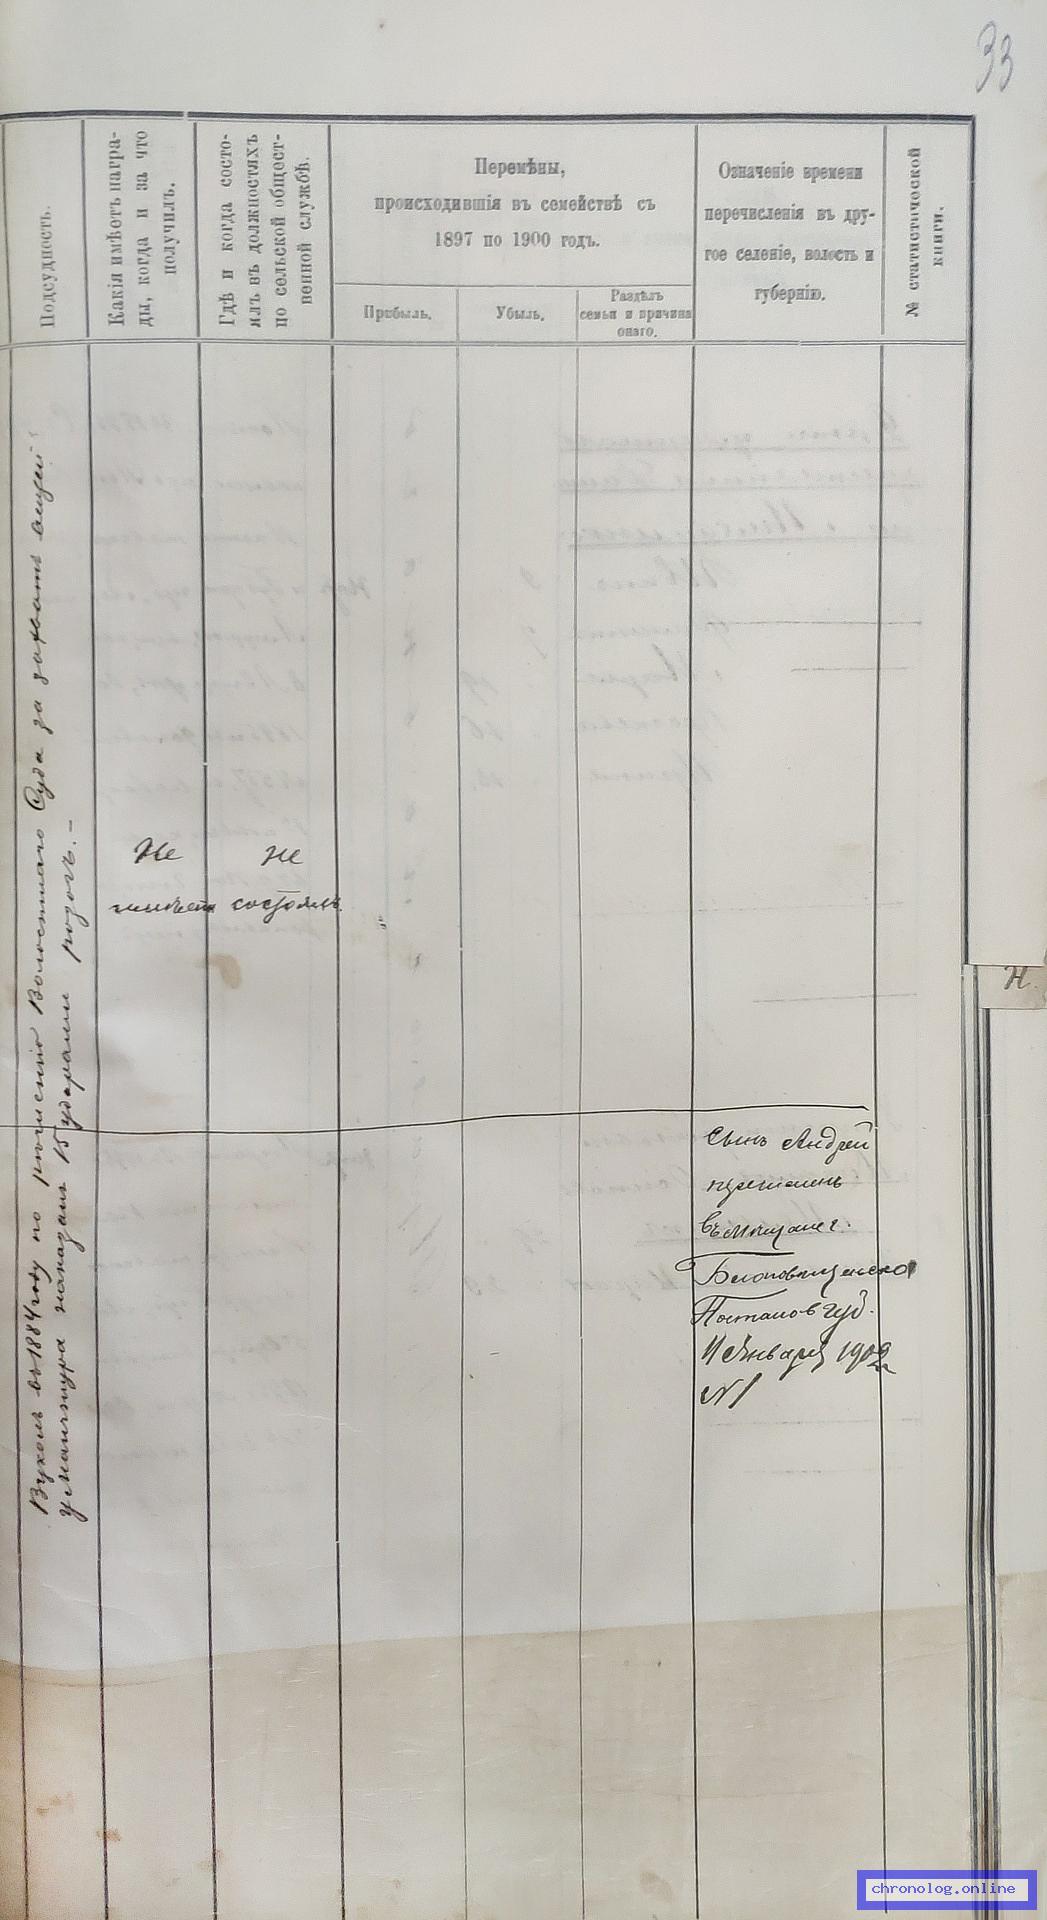 33
Подсудность.
Какія имѣетъ награ-
ды, когда и за что
получилъ.
Гдѣ и когда состо-
ялъ въ должностяхъ
по сельской общест-
венной службѣ.
Перемѣны,
происходившія въ семействѣ съ
1897 по 1900 годъ.
Прибыль.
Убыль.
Раздѣлъ
семьи и причина
онаго.
Означеніе времени
перечисленія въ дру-
гое селеніе, волость и
губернію.
№ статистической
книги.
въ 1884 году по рѣшенію Волостнаго Суда за захватъ вещей
у наказанъ ударами розогъ.-
Не
имѣетъ
Не
состоялъ.
Н.
Сынъ Андрей
въ мѣщане г.
Благовѣщенска
Постанов губ.
11 Января 1902
№ 1
chronolog.online